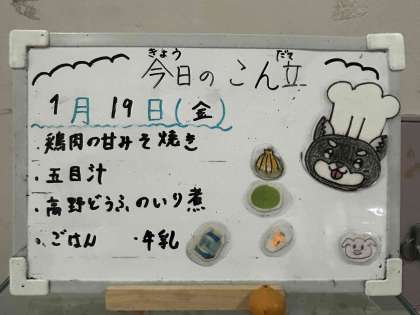 今日のこん立
きょう だて
1月19日(金)
・鶏肉の甘みそ焼き
・五目汁
・高野どうふのいり煮
・ごはん ・牛乳